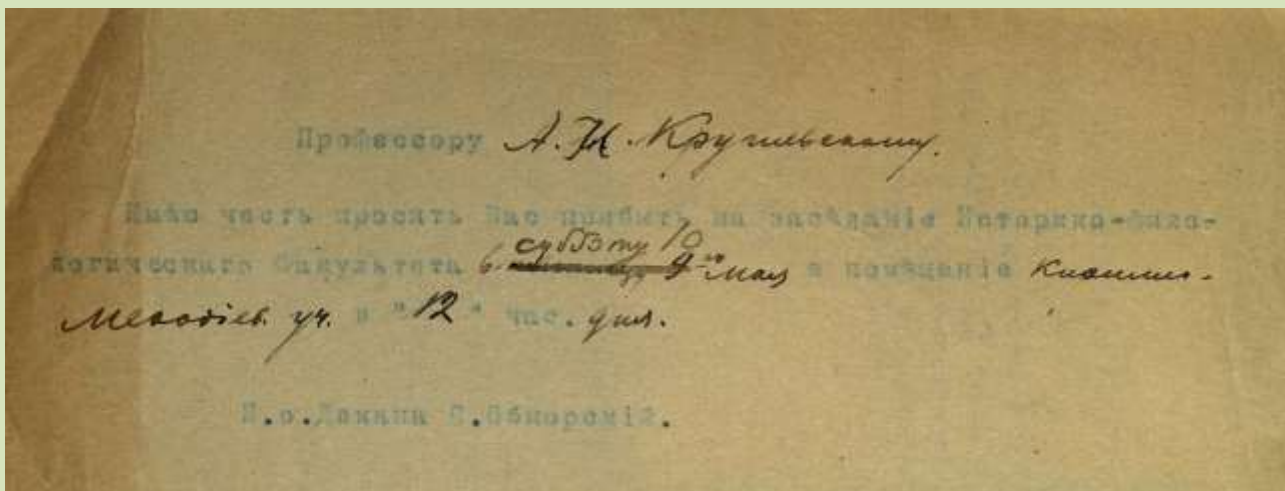 Профессору А. И. Круглевскому.
Имѣю честь просить Вас прибыть на засѣданіе Историко-фило-
логическаго Факультета в субботу 10 9го мая в помѣщеніе Кирилло-
Меѳодіев. уч. в "12" час. дня.
И.о.Декана С.Обнорскій.